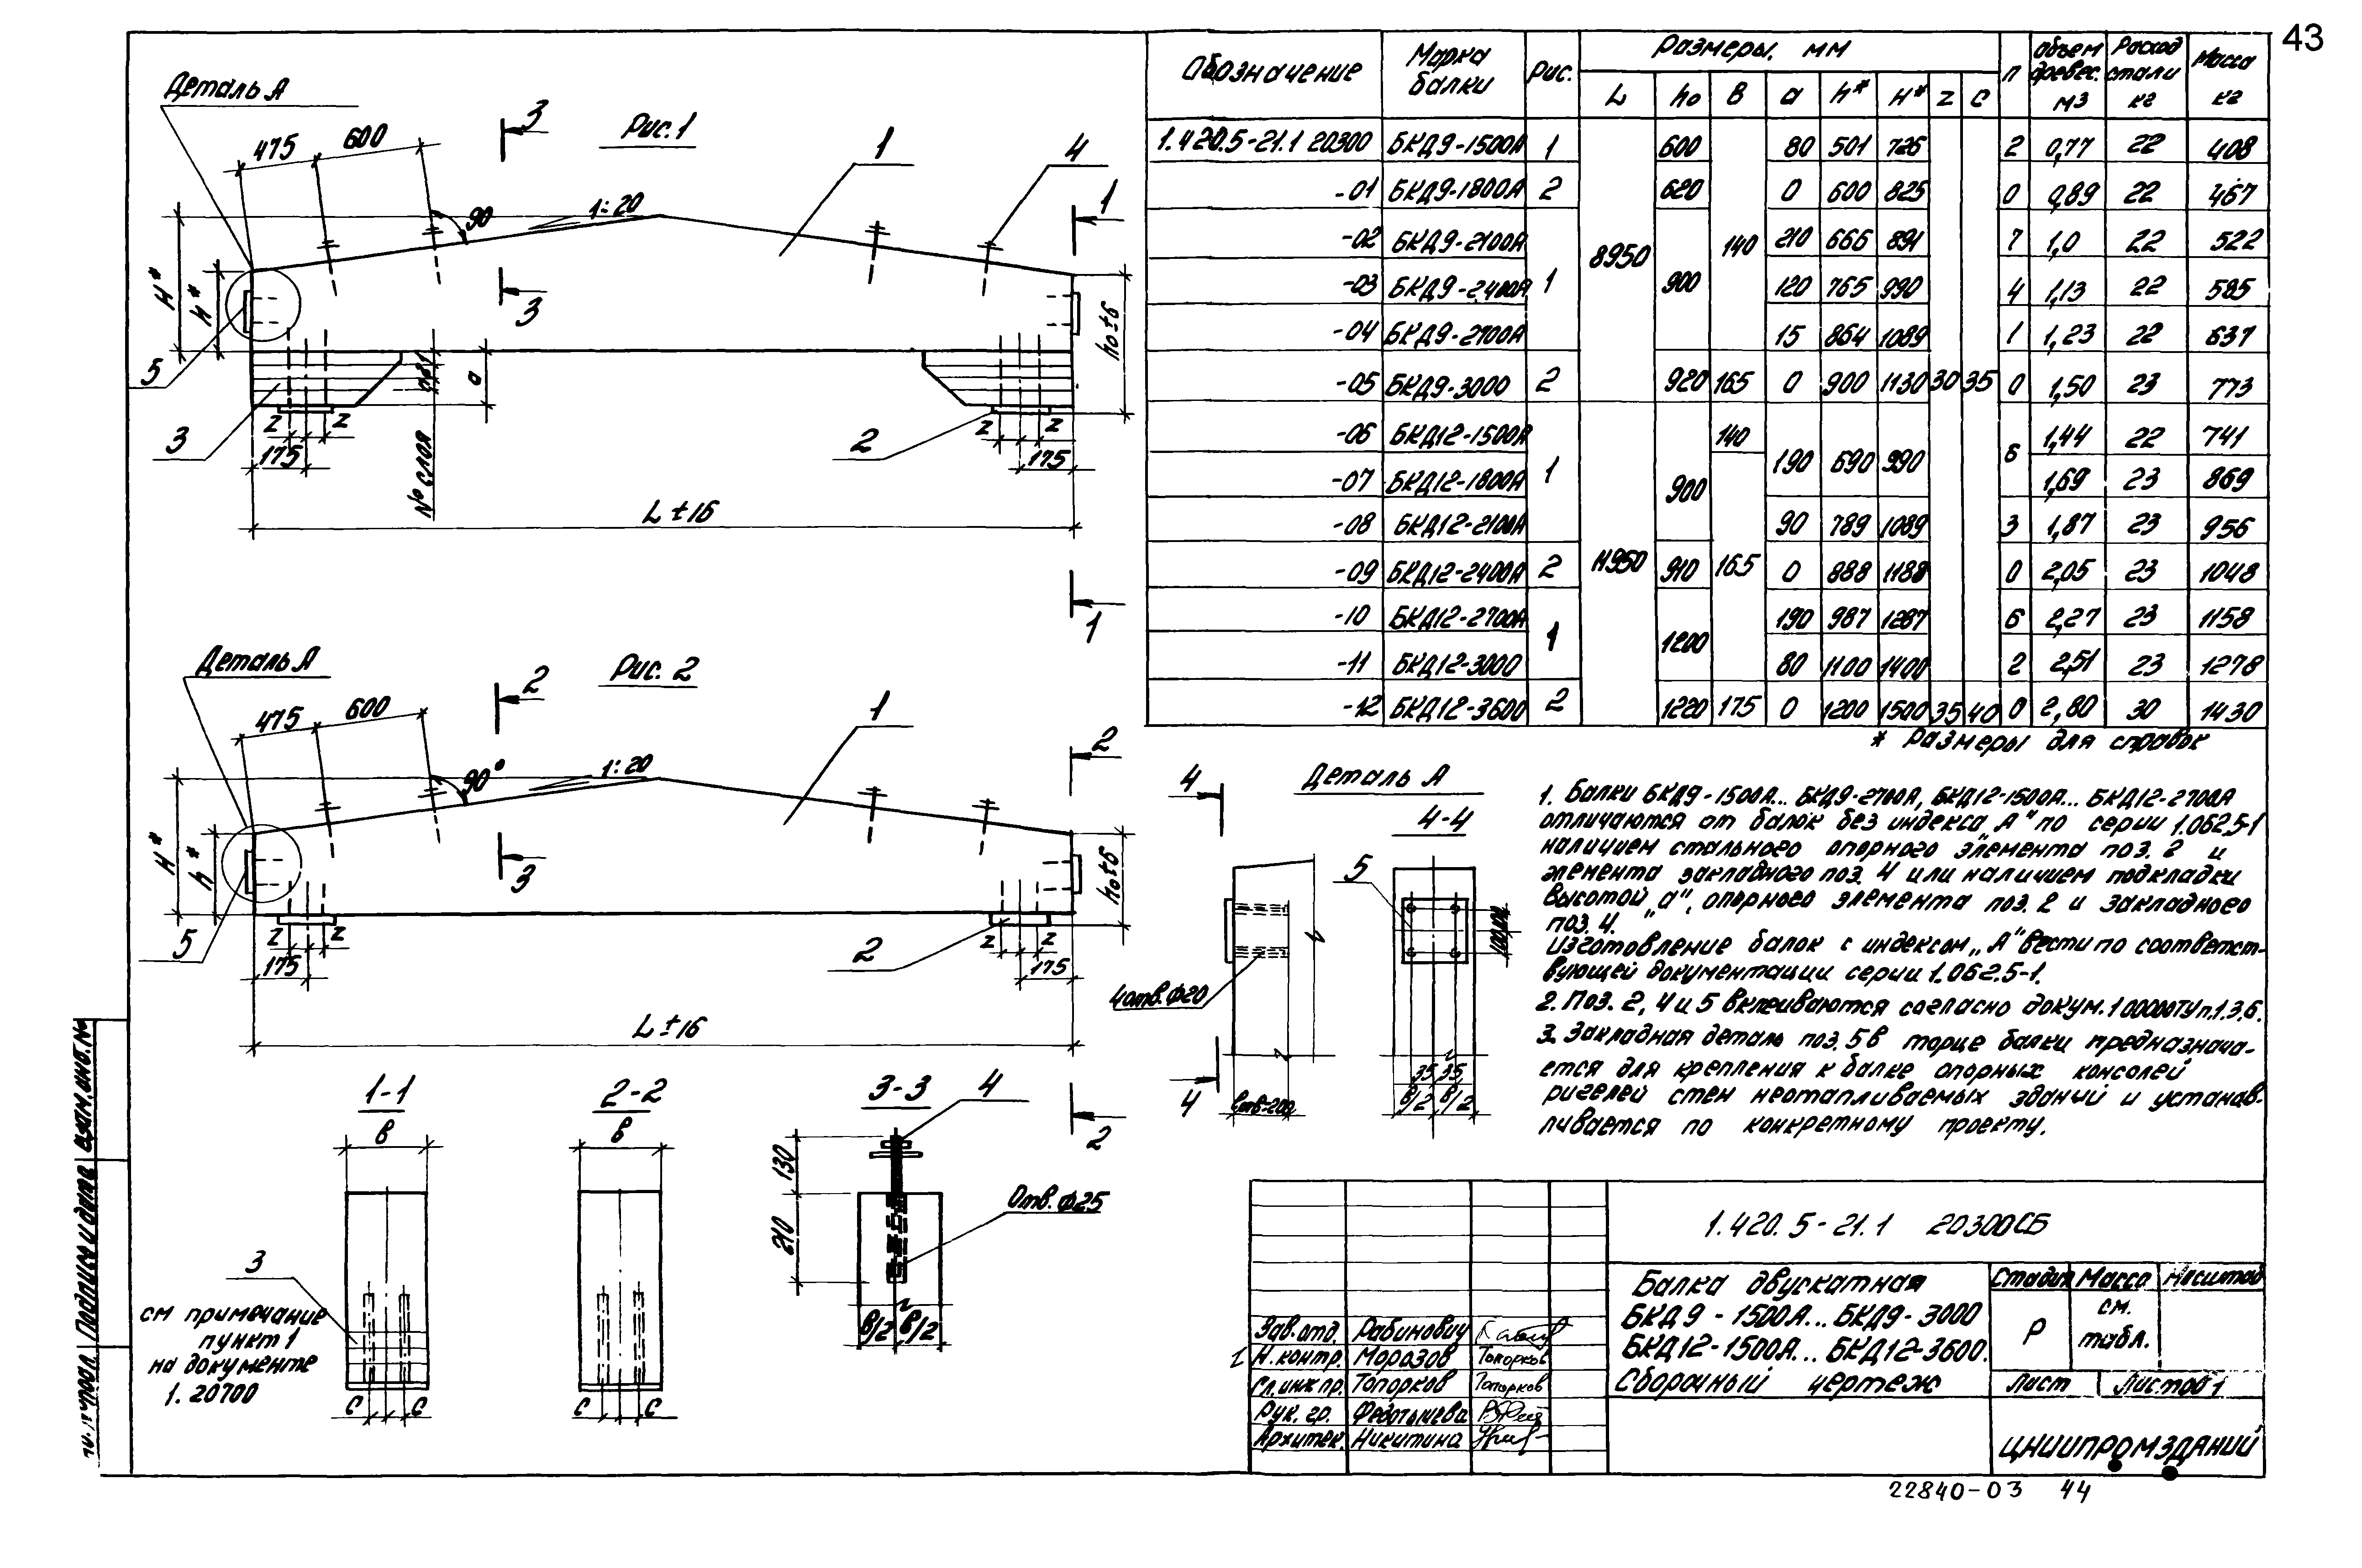 43
Деталь А
475
600
90
1:20
Рис. 1
3
3
1
4
1
H*
h*
5
3
z z
175
№ слоя
a
2
z z
175
h₀±6
L ± 16
1
Деталь А
475
600
90°
1:20
Рис. 2
2
3
1
2
H*
h*
5
z z
175
2
z z
175
h₀±6
L ± 16
2
1-1
в
3
см примечание
пункт 1
на документе
1. 20700
с с
2-2
в
с с
3-3
4
130
210
Отв. ф25
в/2 в/2
Обозначение Марка балки Рис. Размеры, мм п Объем древес. м3 Расход стали кг Масса кг
L h₀ в a h* H* z c
1.420.5-21.1 20300 БКД9-1500А 1 8950 600 140 80 501 726 30 35 2 0,77 22 408
-01 БКД9-1800А 2 620 0 600 825 0 0,89 22 467
-02 БКД9-2100А 1 900 210 666 891 7 1,0 22 522
-03 БКД9-2400А 120 765 990 4 1,13 22 585
-04 БКД9-2700А 15 864 1089 1 1,23 22 637
-05 БКД9-3000 2 920 165 0 900 1130 0 1,50 23 773
-06 БКД12-1500А 1 11950 900 140 190 690 990 6 1,44 22 741
-07 БКД12-1800А 165 1,69 23 869
-08 БКД12-2100А 90 789 1089 3 1,87 23 956
-09 БКД12-2400А 2 910 0 888 1188 0 2,05 23 1048
-10 БКД12-2700А 1 1200 190 987 1287 6 2,27 23 1158
-11 БКД12-3000 80 1100 1400 2 2,51 23 1278
-12 БКД12-3600 2 1220 175 0 1200 1500 35 40 0 2,80 30 1430
* Размеры для справок
Деталь А
4
4-4
5
4 отв. ф20
4
35 35
в/2 в/2
1. Балки БКД9-1500А... БКД9-2700А, БКД12-1500А... БКД12-2700А
отличаются от балок без индекса „А" по серии 1.062.5-1
наличием стального опорного элемента поз. 2 и
элемента закладного поз. 4 или наличием подкладки
высотой „а", опорного элемента поз. 2 и закладного
поз. 4.
Изготовление балок с индексом „А" вести по соответст-
вующей документации серии 1.062.5-1.
2. Поз. 2, 4 и 5 вклеиваются согласно докум. 1 00000ТУ п.1.3.6.
3. Закладная деталь поз. 5 в торце балки предназнача-
ется для крепления к балке опорных консолей
ригелей стен неотапливаемых зданий и устанав-
ливается по конкретному проекту.
1.420.5-21.1 20300СБ
Балка двускатная
БКД9-1500А... БКД9-3000
БКД12-1500А... БКД12-3600.
Сборочный чертеж
Стадия Масса Масштаб
Р см. табл.
Лист Листов 1
ЦНИИПРОМЗДАНИЙ
Зав. отд. Рабинович
Н. контр. Морозов Топорков
Гл. инж. пр. Топорков Топорков
Рук. гр. Федотычева
Архитек. Никитина
Подпись и дата
Взам. инв. №
22840-03 44